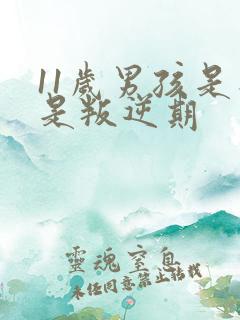 11岁男孩是
是叛逆期
靈魂窒息
未经同意禁止转载